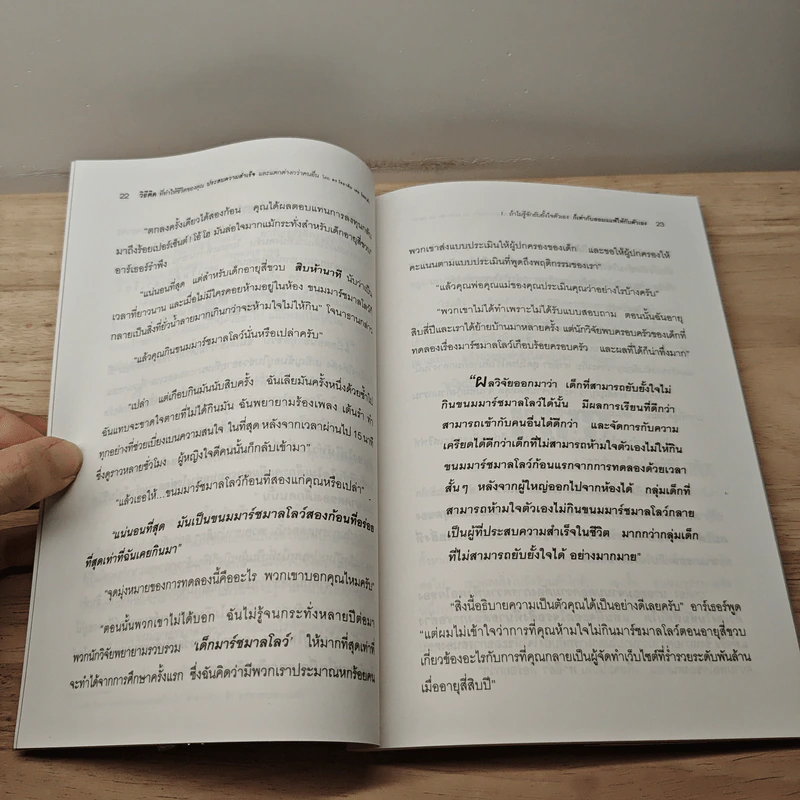 22 วิธีคิด ที่ทำให้ชีวิตของคุณ ประสบความสำเร็จ และแตกต่างกว่าคนอื่น
"ตกลงครั้งเดียวได้สองก้อน คุณได้ผลตอบแทนการลงทุนกลับ
มาถึงร้อยเปอร์เซ็นต์! โอ้ โฮ มันล่อใจมากแม้กระทั่งสำหรับเด็กอายุสี่ขวบ"
อาร์เธอร์รำพึง
"แน่นอนที่สุด แต่สำหรับเด็กอายุสี่ขวบ สิบห้านาที นับว่าเป็น
เวลาที่ยาวนาน และเมื่อไม่มีใครคอยห้ามอยู่ในห้อง ขนมมาร์ชมาลโลว์ก็
กลายเป็นสิ่งที่ยั่วน้ำลายมากเกินกว่าจะห้ามใจไม่ให้กิน" โจนาธานกล่าว
"แล้วคุณกินขนมมาร์ชมาลโลว์นั่นหรือเปล่าครับ"
"เปล่า แต่เกือบกินมันนับสิบครั้ง ฉันเลียมันครั้งหนึ่งด้วยซ้ำไป
ฉันแทบจะขาดใจตายที่ไม่ได้กินมัน ฉันพยายามร้องเพลง เต้นรำ ทำ
ทุกอย่างที่ช่วยเบี่ยงเบนความสนใจ ในที่สุด หลังจากเวลาผ่านไป 15 นาที
ซึ่งดูราวหลายชั่วโมง ผู้หญิงใจดีคนนั้นก็กลับเข้ามา"
"แล้วเธอให้...ขนมมาร์ชมาลโลว์ก้อนที่สองแก่คุณหรือเปล่า"
"แน่นอนที่สุด มันเป็นขนมมาร์ชมาลโลว์สองก้อนที่อร่อย
ที่สุดเท่าที่ฉันเคยกินมา"
"จุดมุ่งหมายของการทดลองนี้คืออะไร พวกเขาบอกคุณไหมครับ"
"ตอนนั้นพวกเขาไม่ได้บอก ฉันไม่รู้จนกระทั่งหลายปีต่อมา
พวกนักวิจัยพยายามรวบรวม 'เด็กมาร์ชมาลโลว์' ให้มากที่สุดเท่าที่
จะทำได้จากการศึกษาครั้งแรก ซึ่งฉันคิดว่ามีพวกเราประมาณหกร้อยคน
1. ถ้าไม่รู้จักยับยั้งใจตัวเอง 23
พวกเขาส่งแบบประเมินให้ผู้ปกครองของเด็ก และขอให้ผู้ปกครองให้
คะแนนตามแบบประเมินที่พูดถึงพฤติกรรมของเรา"
"แล้วคุณพ่อคุณแม่ของคุณประเมินคุณว่าอย่างไรบ้างครับ"
"พวกเขาไม่ได้ทำเพราะไม่ได้รับแบบสอบถาม ตอนนั้นฉันอายุ
สิบสี่ปีและเราได้ย้ายบ้านมาหลายครั้ง แต่นักวิจัยพบครอบครัวของเด็กที่
ทดลองเรื่องมาร์ชมาลโลว์เกือบร้อยครอบครัว และผลที่ได้ก็น่าทึ่งมาก"
"ผลวิจัยออกมาว่า เด็กที่สามารถยับยั้งใจไม่
กินขนมมาร์ชมาลโลว์ได้นั้น มีผลการเรียนที่ดีกว่า
สามารถเข้ากับคนอื่นได้ดีกว่า และจัดการกับความ
เครียดได้ดีกว่าเด็กที่ไม่สามารถห้ามใจตัวเองไม่ให้กิน
ขนมมาร์ชมาลโลว์ก้อนแรกจากการทดลองด้วยเวลา
สั้นๆ หลังจากผู้ใหญ่ออกไปจากห้องได้ กลุ่มเด็กที่
สามารถห้ามใจตัวเองไม่กินขนมมาร์ชมาลโลว์กลาย
เป็นผู้ที่ประสบความสำเร็จในชีวิต มากกว่ากลุ่มเด็ก
ที่ไม่สามารถยับยั้งใจได้ อย่างมากมาย"
"สิ่งนี้อธิบายความเป็นตัวคุณได้เป็นอย่างดีเลยครับ" อาร์เธอร์พูด
"แต่ผมไม่เข้าใจว่าการที่คุณห้ามใจไม่กินมาร์ชมาลโลว์ตอนอายุสี่ขวบ
เกี่ยวข้องอะไรกับการที่คุณกลายเป็นผู้จัดทำเว็บไซต์ที่ร่ำรวยระดับพันล้าน
เมื่ออายุสี่สิบปี"